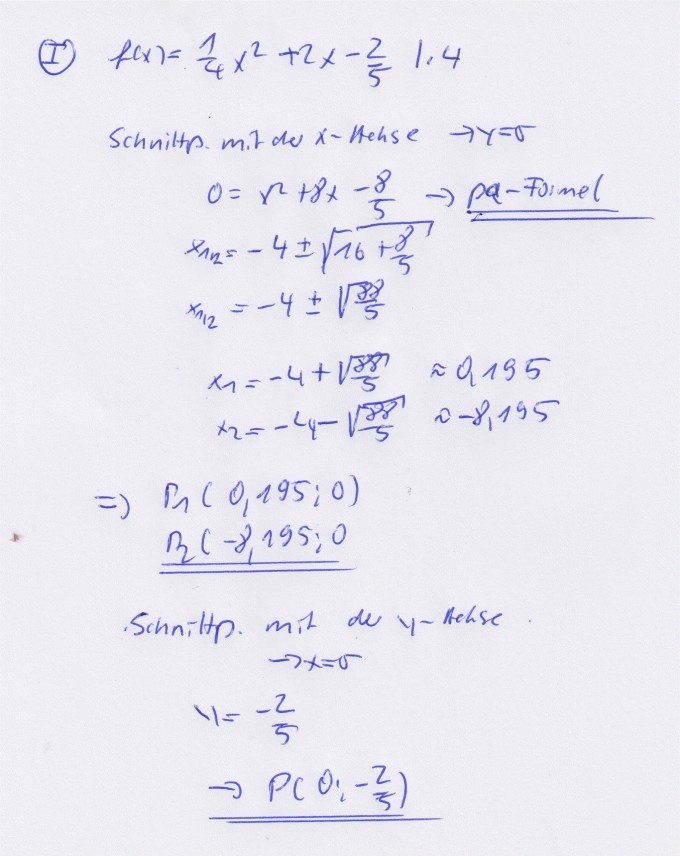 I f(x)= 1/4 x² +2x - 2/5 |·4
Schnittp. mit der x-Achse → y=0
0= x² +8x - 8/5 → pq-Formel
x1,2= -4 ± √(16 + 8/5)
x1,2 = -4 ± √(88/5)
x1 = -4 + √(88/5) ≈ 0,195
x2 = -4 - √(88/5) ≈ -8,195
=> P1 ( 0,195; 0)
P2 ( -8,195; 0
Schnittp. mit der y-Achse.
→ x=0
y= -2/5
→ P( 0; -2/5)